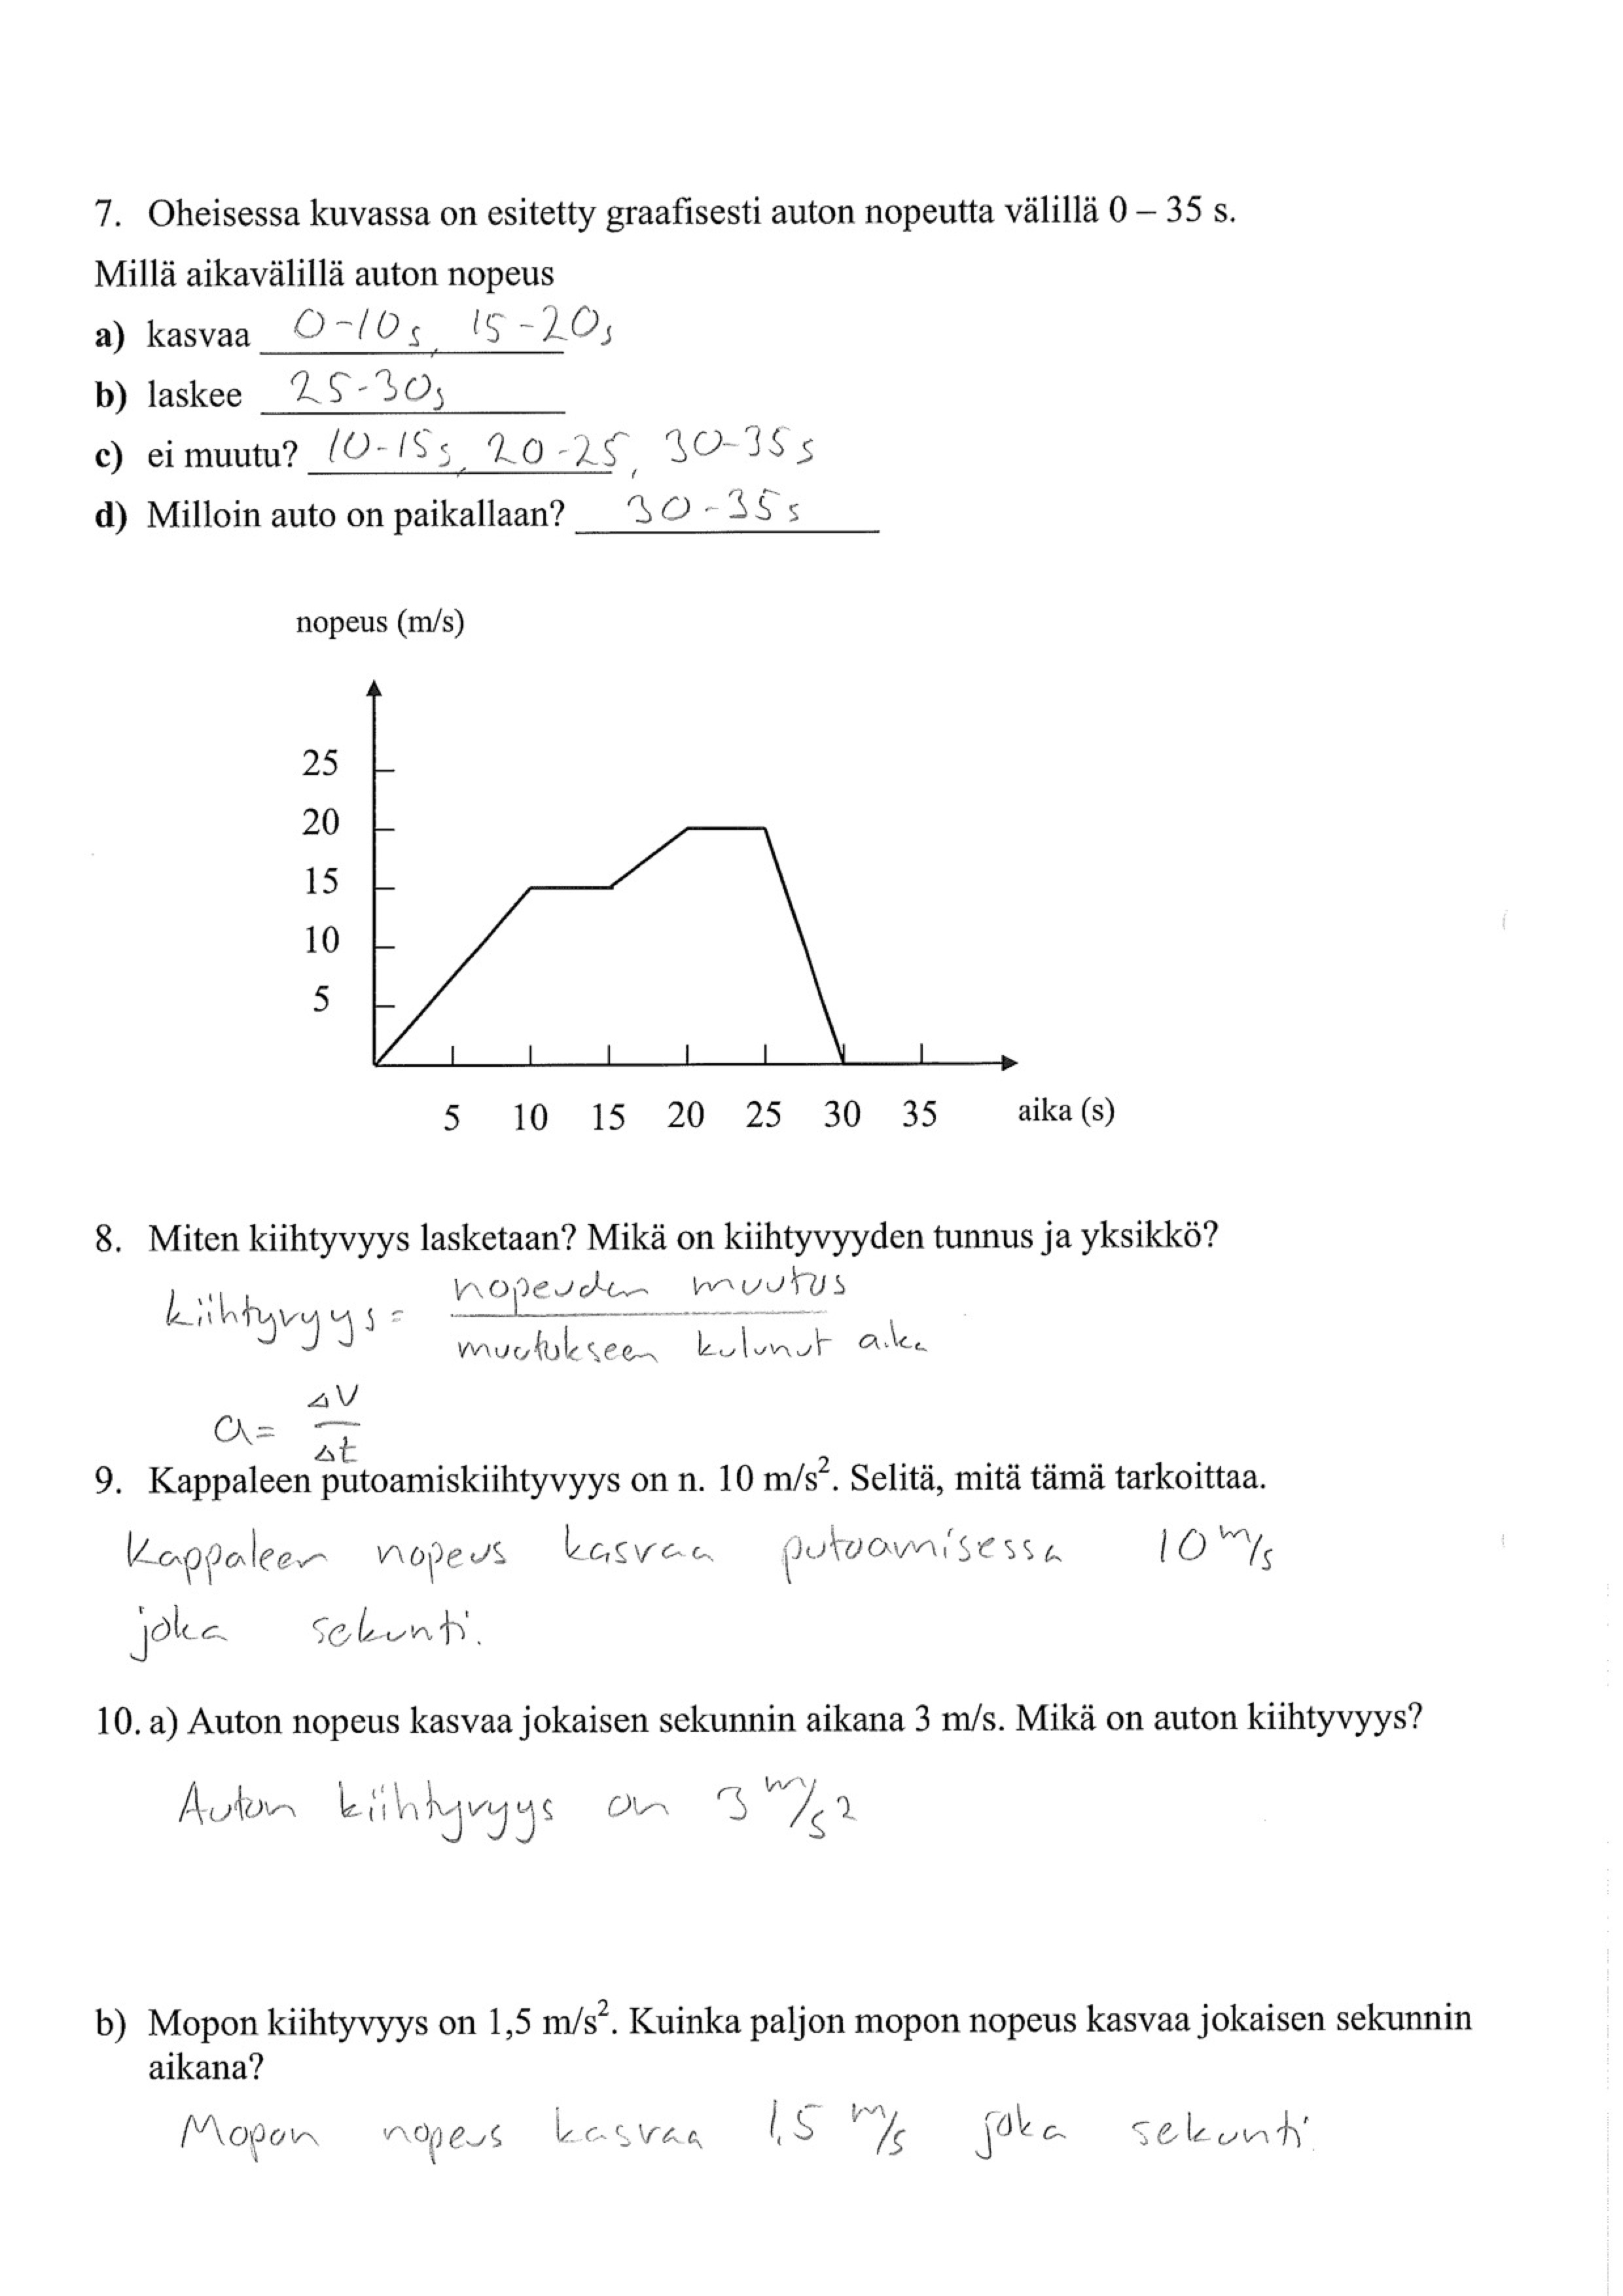 7. Oheisessa kuvassa on esitetty graafisesti auton nopeutta välillä 0 – 35 s.
Millä aikavälillä auton nopeus
a) kasvaa 0-10s, 15-20s
b) laskee 25-30s
c) ei muutu? 10-15s, 20-25, 30-35s
d) Milloin auto on paikallaan? 30-35s
nopeus (m/s)
25
20
15
10
5
5 10 15 20 25 30 35 aika (s)
8. Miten kiihtyvyys lasketaan? Mikä on kiihtyvyyden tunnus ja yksikkö?
kiihtyvyys = nopeuden muutus
muutokseen kulunut aika
a = ΔV
Δt
9. Kappaleen putoamiskiihtyvyys on n. 10 m/s². Selitä, mitä tämä tarkoittaa.
Kappaleen nopeus kasvaa putoamisessa 10 m/s
joka sekunti.
10. a) Auton nopeus kasvaa jokaisen sekunnin aikana 3 m/s. Mikä on auton kiihtyvyys?
Auton kiihtyvyys on 3 m/s²
b) Mopon kiihtyvyys on 1,5 m/s². Kuinka paljon mopon nopeus kasvaa jokaisen sekunnin
aikana?
Mopon nopeus kasvaa 1,5 m/s joka sekunti.